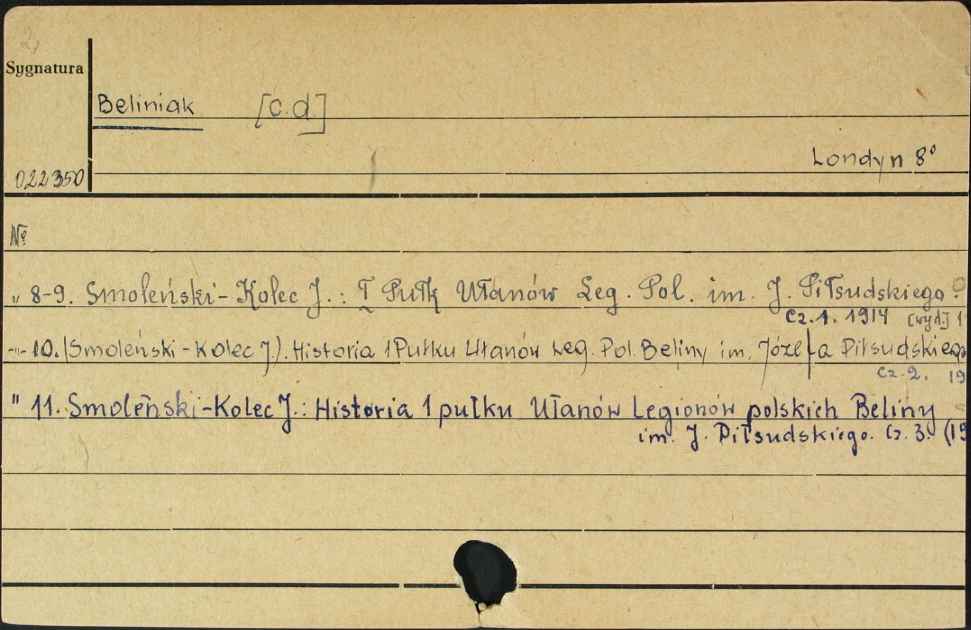 2)
Sygnatura
Beliniak [c.d.]
Londyn 8°
022350
№
„ 8-9. Smoleński-Kolec J.: I Pułk Ułanów Leg. Pol. im. J. Piłsudskiego.
Cz. 1. 1914 [wyd.] 1
-„- 10. (Smoleński-Kolec J.). Historia 1 Pułku Ułanów Leg. Pol. Beliny im. Józefa Piłsudskiego
Cz. 2. 19
" 11. Smoleński-Kolec J.: Historia 1 pułku Ułanów Legionów polskich Beliny
im. J. Piłsudskiego. Cz. 3. (19